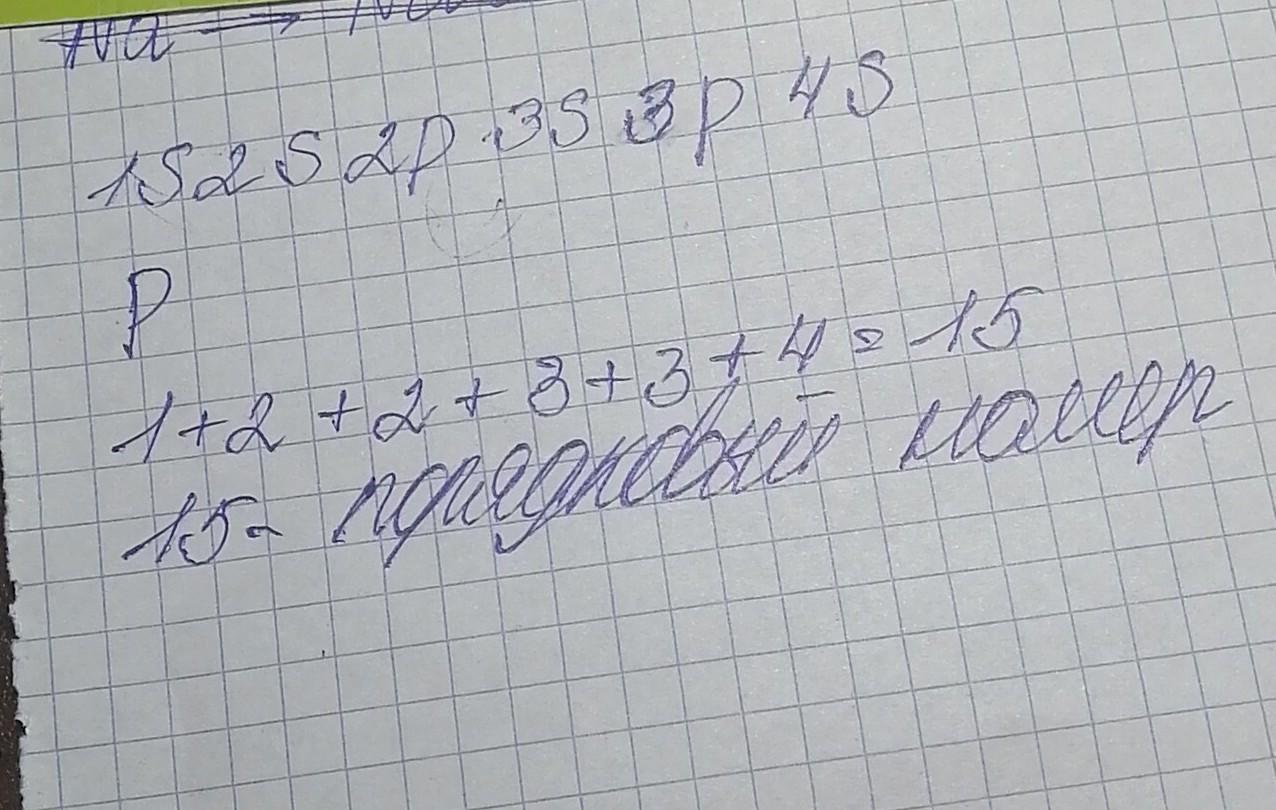 Na → Na
1S2S2P3S3P4S
P
1+2+2+3+3+4=15
15- порядковый номер